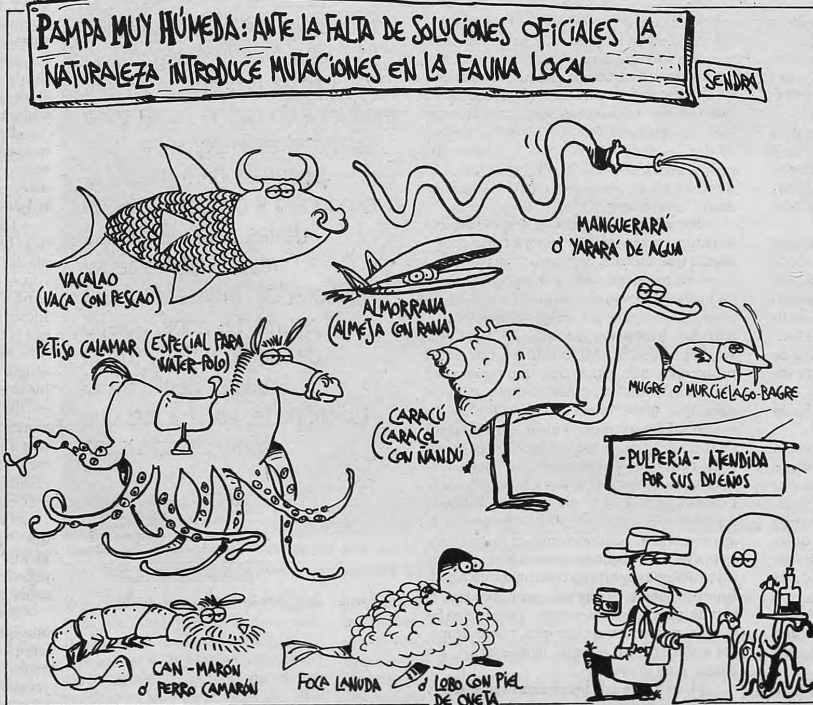 PAMPA MUY HÚMEDA: ANTE LA FALTA DE SOLUCIONES OFICIALES LA
NATURALEZA INTRODUCE MUTACIONES EN LA FAUNA LOCAL
SENDRA
VACALAO
(VACA CON PESCAO)
MANGUERARÁ
Ó YARARÁ DE AGUA
ALMORRANA
(ALMEJA CON RANA)
PETISO CALAMAR (ESPECIAL PARA
WATER-POLO)
CARACÚ
(CARACOL
CON ÑANDÚ)
MUGRE Ó MURCIELAGO-BAGRE
-PULPERÍA- ATENDIDA
POR SUS DUEÑOS
CAN-MARÓN
Ó PERRO CAMARÓN
FOCA LANUDA Ó LOBO CON PIEL
DE OVEJA